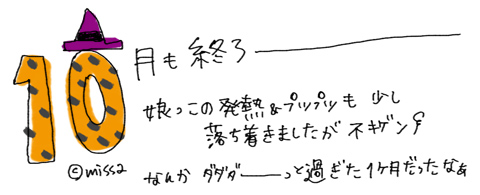 10月も終了――――
娘っこの発熱&プツプツも少し
落ち着きましたが不キゲン
なんかダダダ――っと過ぎた1ヶ月だったなぁ
©missa